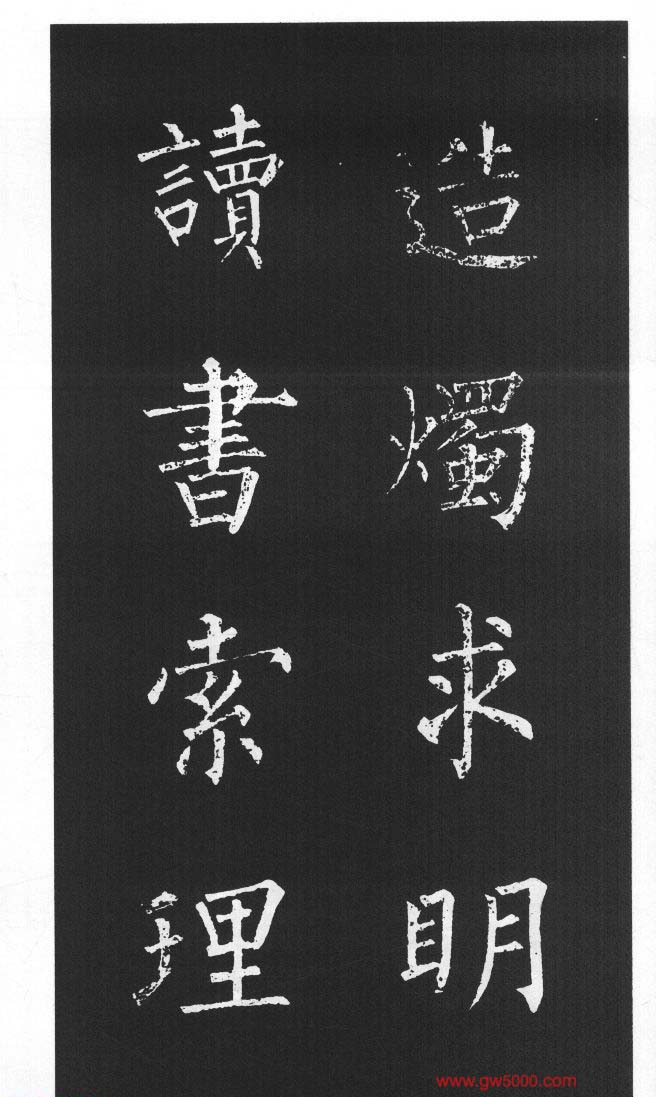 造燭求明
讀書索理
www.gw5000.com